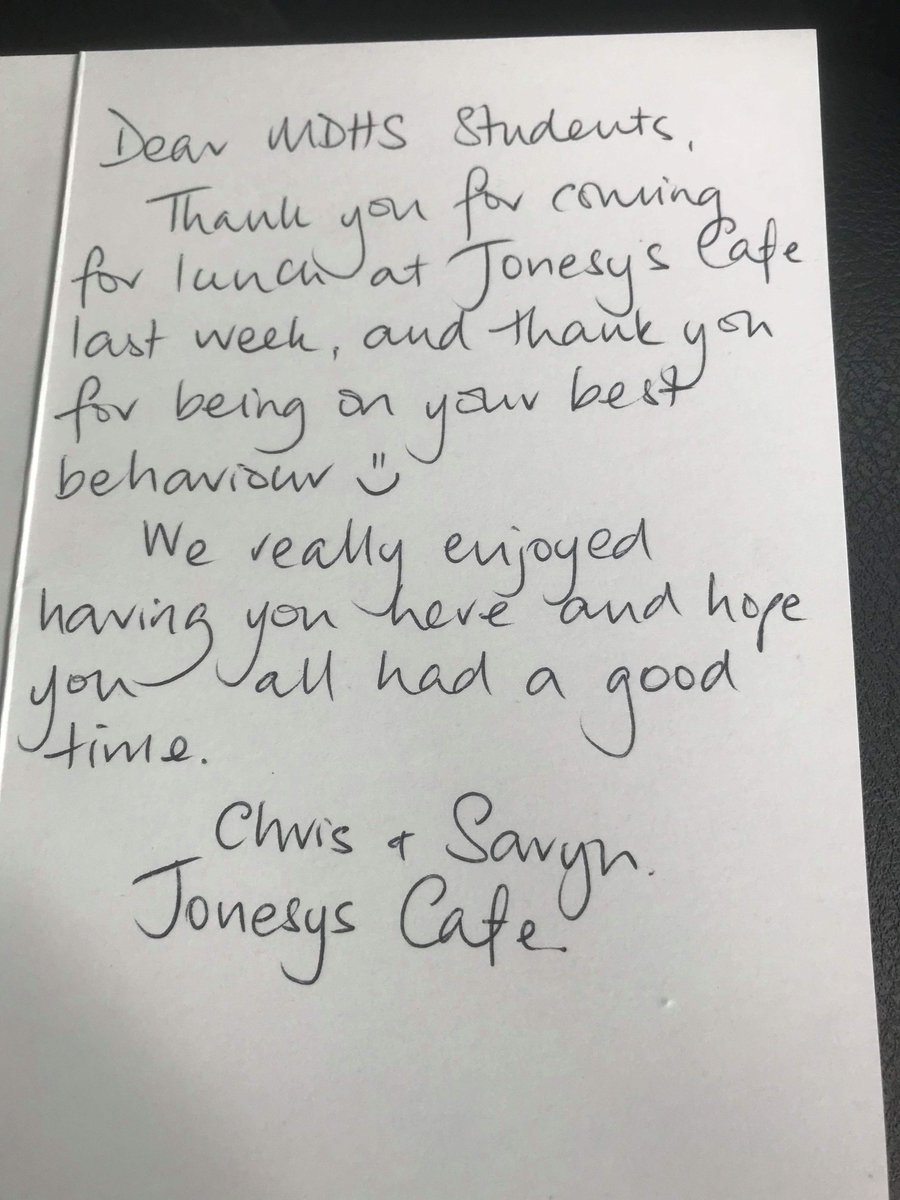 Dear MDHS Students,
Thank you for coming
for lunch at Jonesy's Cafe
last week, and thank you
for being on your best
behaviour
We really enjoyed
having you here and hope
you all had a good
time.
Chris + Saryn.
Jonesys Cafe